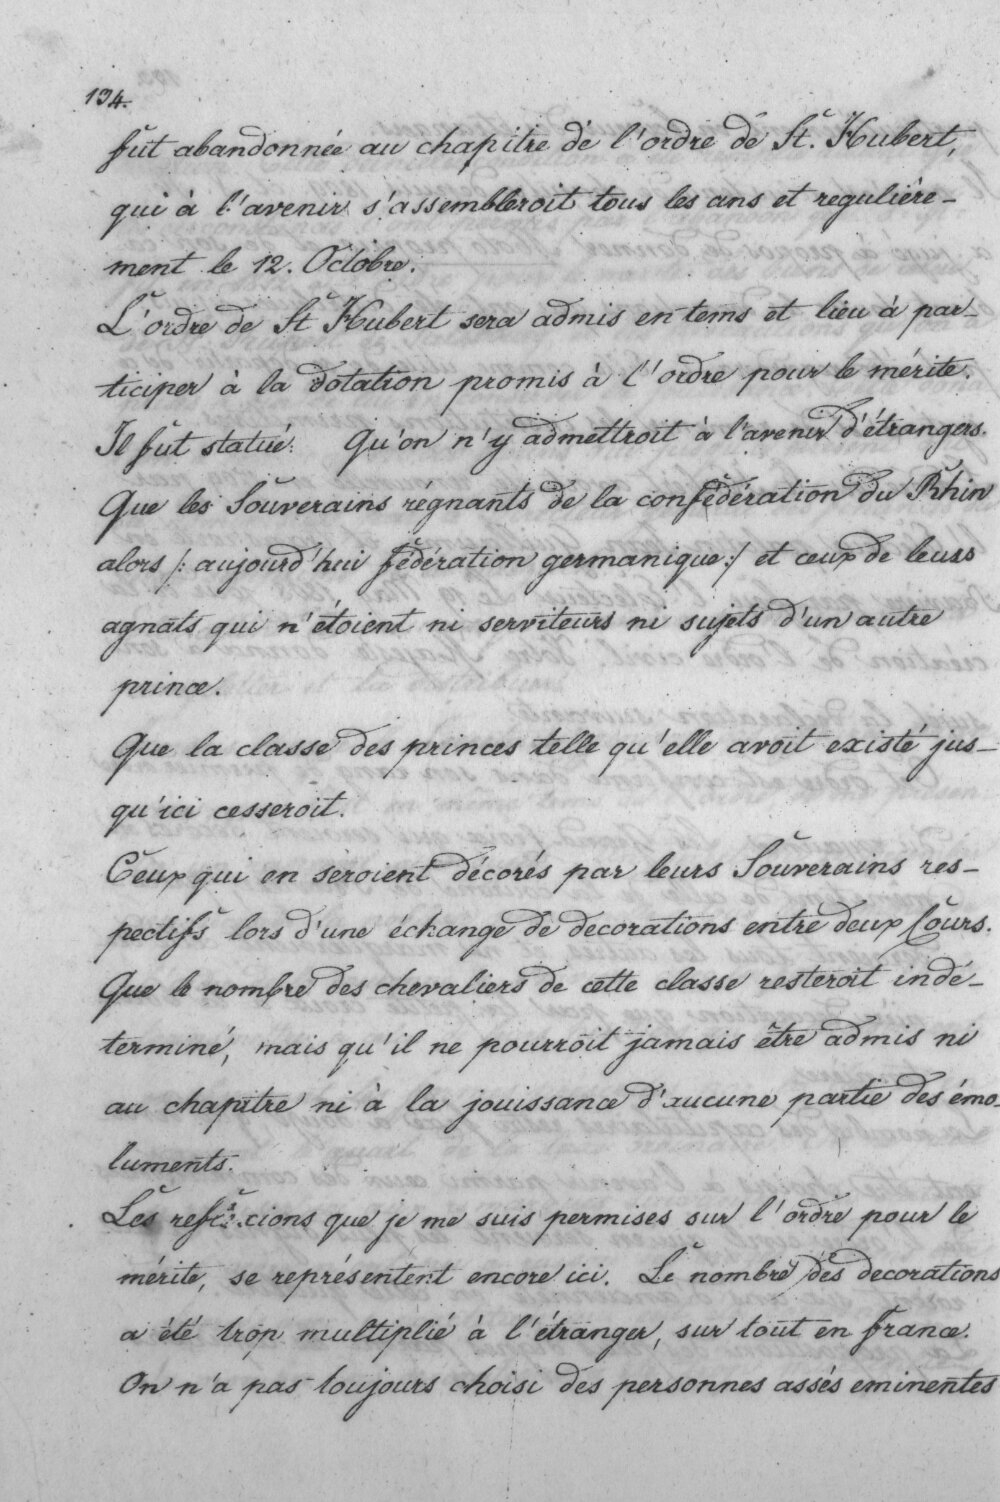 194.
fut abandonnée au chapitre de l'ordre de St. Hubert,
qui à l'avenir s'assembleroit tous les ans et regulière-
ment le 12. Octobre.
L'ordre de St Hubert sera admis en tems et lieu à par-
ticiper à la dotation promis à l'ordre pour le mérite.
Il fut statué: Qu'on n'y admettroit à l'avenir d'étrangers.
Que les Souverains régnants de la confédération du Rhin
alors /: aujourd'hui fédération germanique :/ et ceux de leurs
agnats qui n'étoient ni serviteurs ni sujets d'un autre
prince.
Que la classe des princes telle qu'elle avoit existé jus-
qu'ici cesseroit.
Ceux qui en seroient décorés par leurs Souverains res-
pectifs lors d'une échange de decorations entre deux Cours.
Que le nombre des chevaliers de cette classe resteroit indé-
terminé, mais qu'il ne pourroit jamais être admis ni
au chapitre ni à la jouissance d'aucune partie des émo-
luments.
Les que je me suis permises sur l'ordre pour le
mérite, se représentent encore ici. Le nombre des decorations
a été trop multiplié à l'étranger, sur tout en france.
On n'a pas toujours choisi des personnes assés eminentes